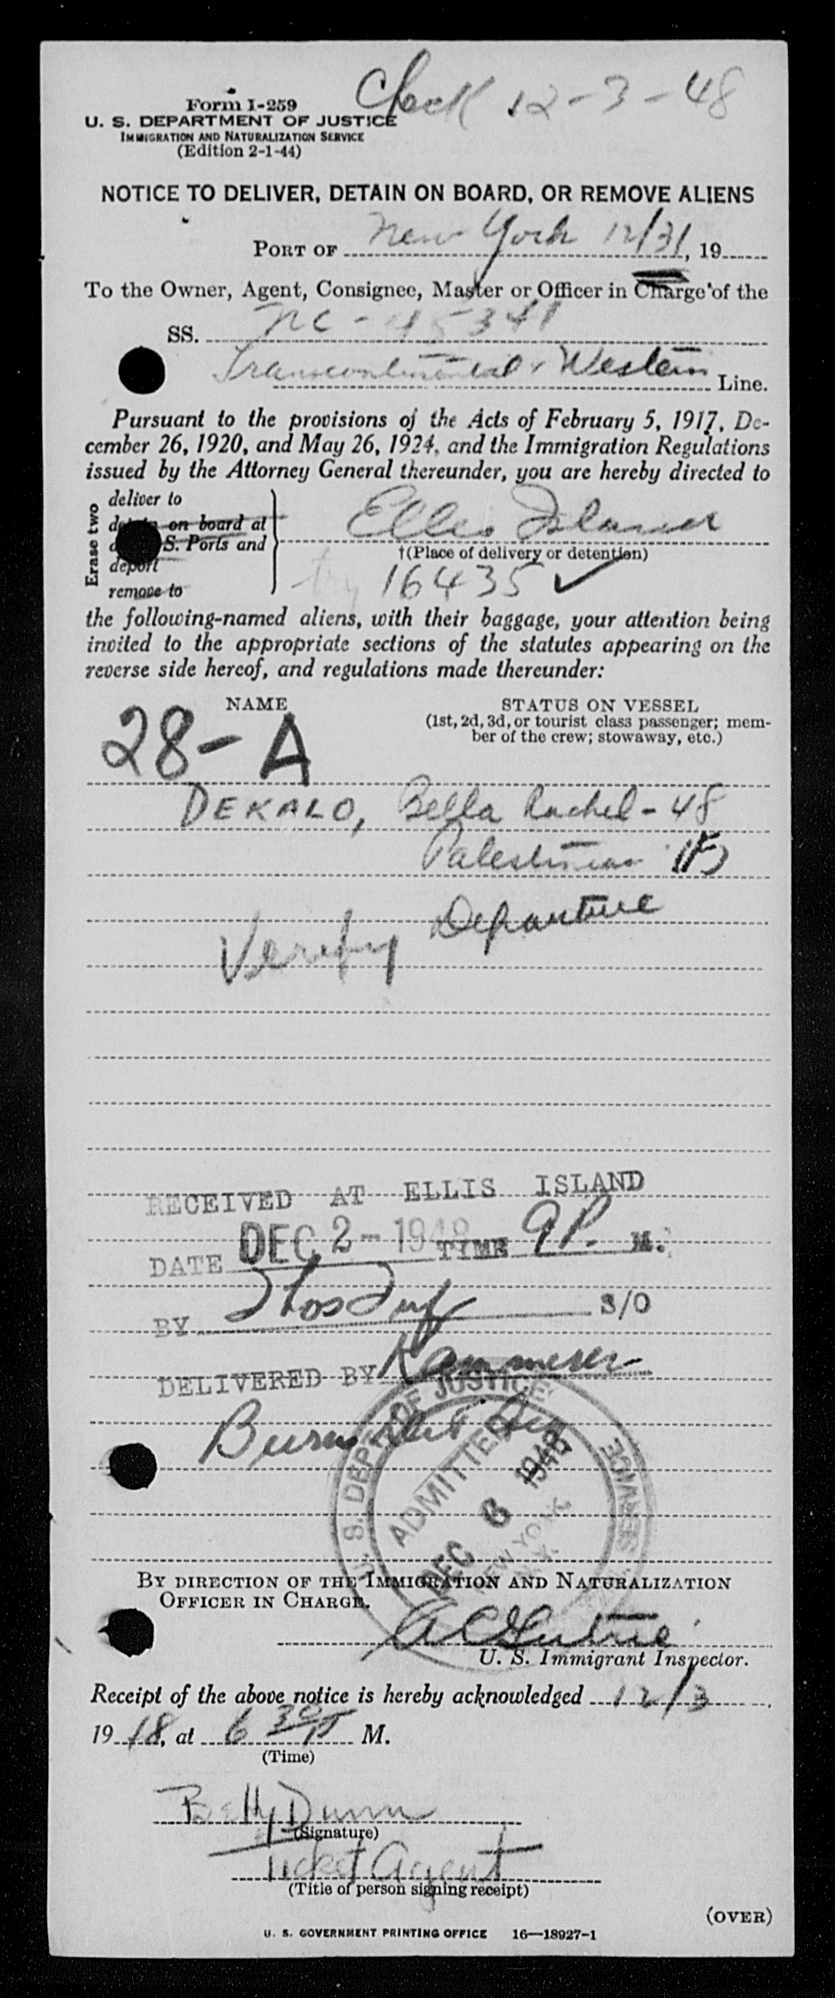 Check 12-3-48
Form I-259
U. S. DEPARTMENT OF JUSTICE
IMMIGRATION AND NATURALIZATION SERVICE
(Edition 2-1-44)
NOTICE TO DELIVER, DETAIN ON BOARD, OR REMOVE ALIENS
PORT OF New York 12/3/, 19
To the Owner, Agent, Consignee, Master or Officer in Charge of the
SS. NC-45341
Transcontinental & Western Line.
Pursuant to the provisions of the Acts of February 5, 1917, De-
cember 26, 1920, and May 26, 1924, and the Immigration Regulations
issued by the Attorney General thereunder, you are hereby directed to
Erase two
deliver to
on board at
S. Ports and
deport
remove to
Ellis Island
†(Place of delivery or detention)
16435 ✓
the following-named aliens, with their baggage, your attention being
invited to the appropriate sections of the statutes appearing on the
reverse side hereof, and regulations made thereunder:
NAME
STATUS ON VESSEL
(1st, 2d, 3d, or tourist class passenger; mem-
ber of the crew; stowaway, etc.)
28-A
DEKALO, Bella Rachel - 48
Palestinian (F)
Verify Departure
RECEIVED AT ELLIS ISLAND
DATE DEC 2-1948 TIME 9 P. M.
BY S/O
DELIVERED BY Kammerer
Burns
U. S. DEPT. OF JUSTICE
SERVICE
ADMITTED
DEC 6 1948
NEW YORK
BY DIRECTION OF THE IMMIGRATION AND NATURALIZATION
OFFICER IN CHARGE.
U. S. Immigrant Inspector.
Receipt of the above notice is hereby acknowledged 12/3,
19 48, at 6 30 P M.
(Time)
Betty Dunn
(Signature)
Ticket Agent
(Title of person signing receipt)
(OVER)
U. S. GOVERNMENT PRINTING OFFICE 16—18927-1